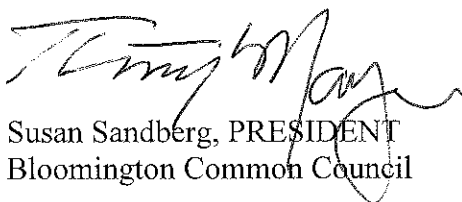 Susan Sandberg, PRESIDENT
Bloomington Common Council